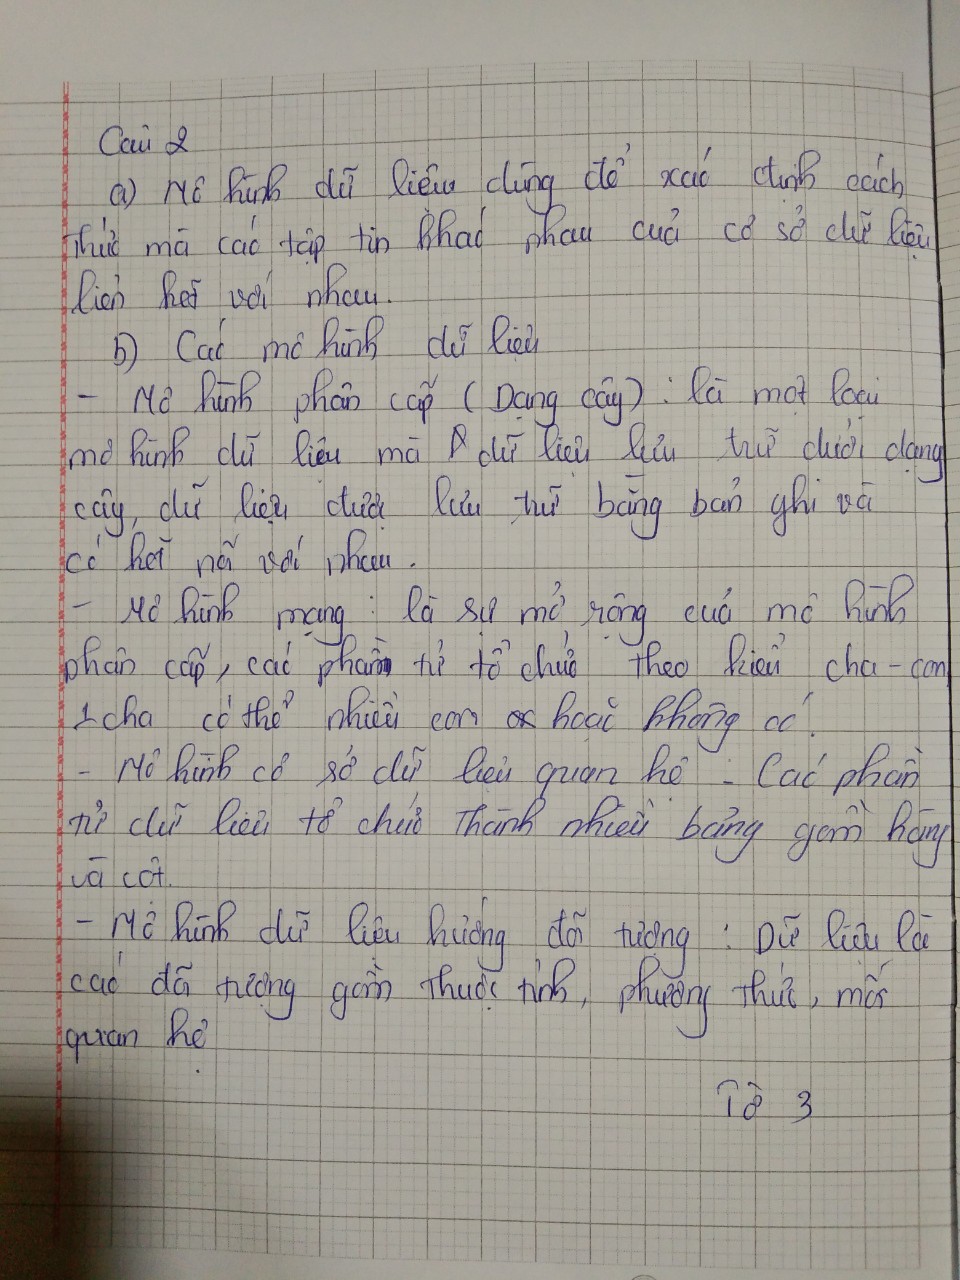 Câu 2
a) Mô hình dữ liệu dùng để xác định cách
thức mà các tập tin khác nhau của cơ sở dữ liệu
liên kết với nhau.
b) Các mô hình dữ liệu
- Mô hình phân cấp (Dạng cây) : là một loại
mô hình dữ liệu mà dữ liệu lưu trữ dưới dạng
cây, dữ liệu được lưu trữ bằng bản ghi và
có kết nối với nhau.
- Mô hình mạng : là sự mở rộng của mô hình
phân cấp, các phần tử tổ chức theo kiểu cha-con
1 cha có thể nhiều con hoặc không có.
- Mô hình cơ sở dữ liệu quan hệ - Các phần
tử dữ liệu tổ chức thành nhiều bảng gồm hàng
và cột.
- Mô hình dữ liệu hướng đối tượng : Dữ liệu là
các đối tượng gồm thuộc tính, phương thức, mối
quan hệ
Tờ 3